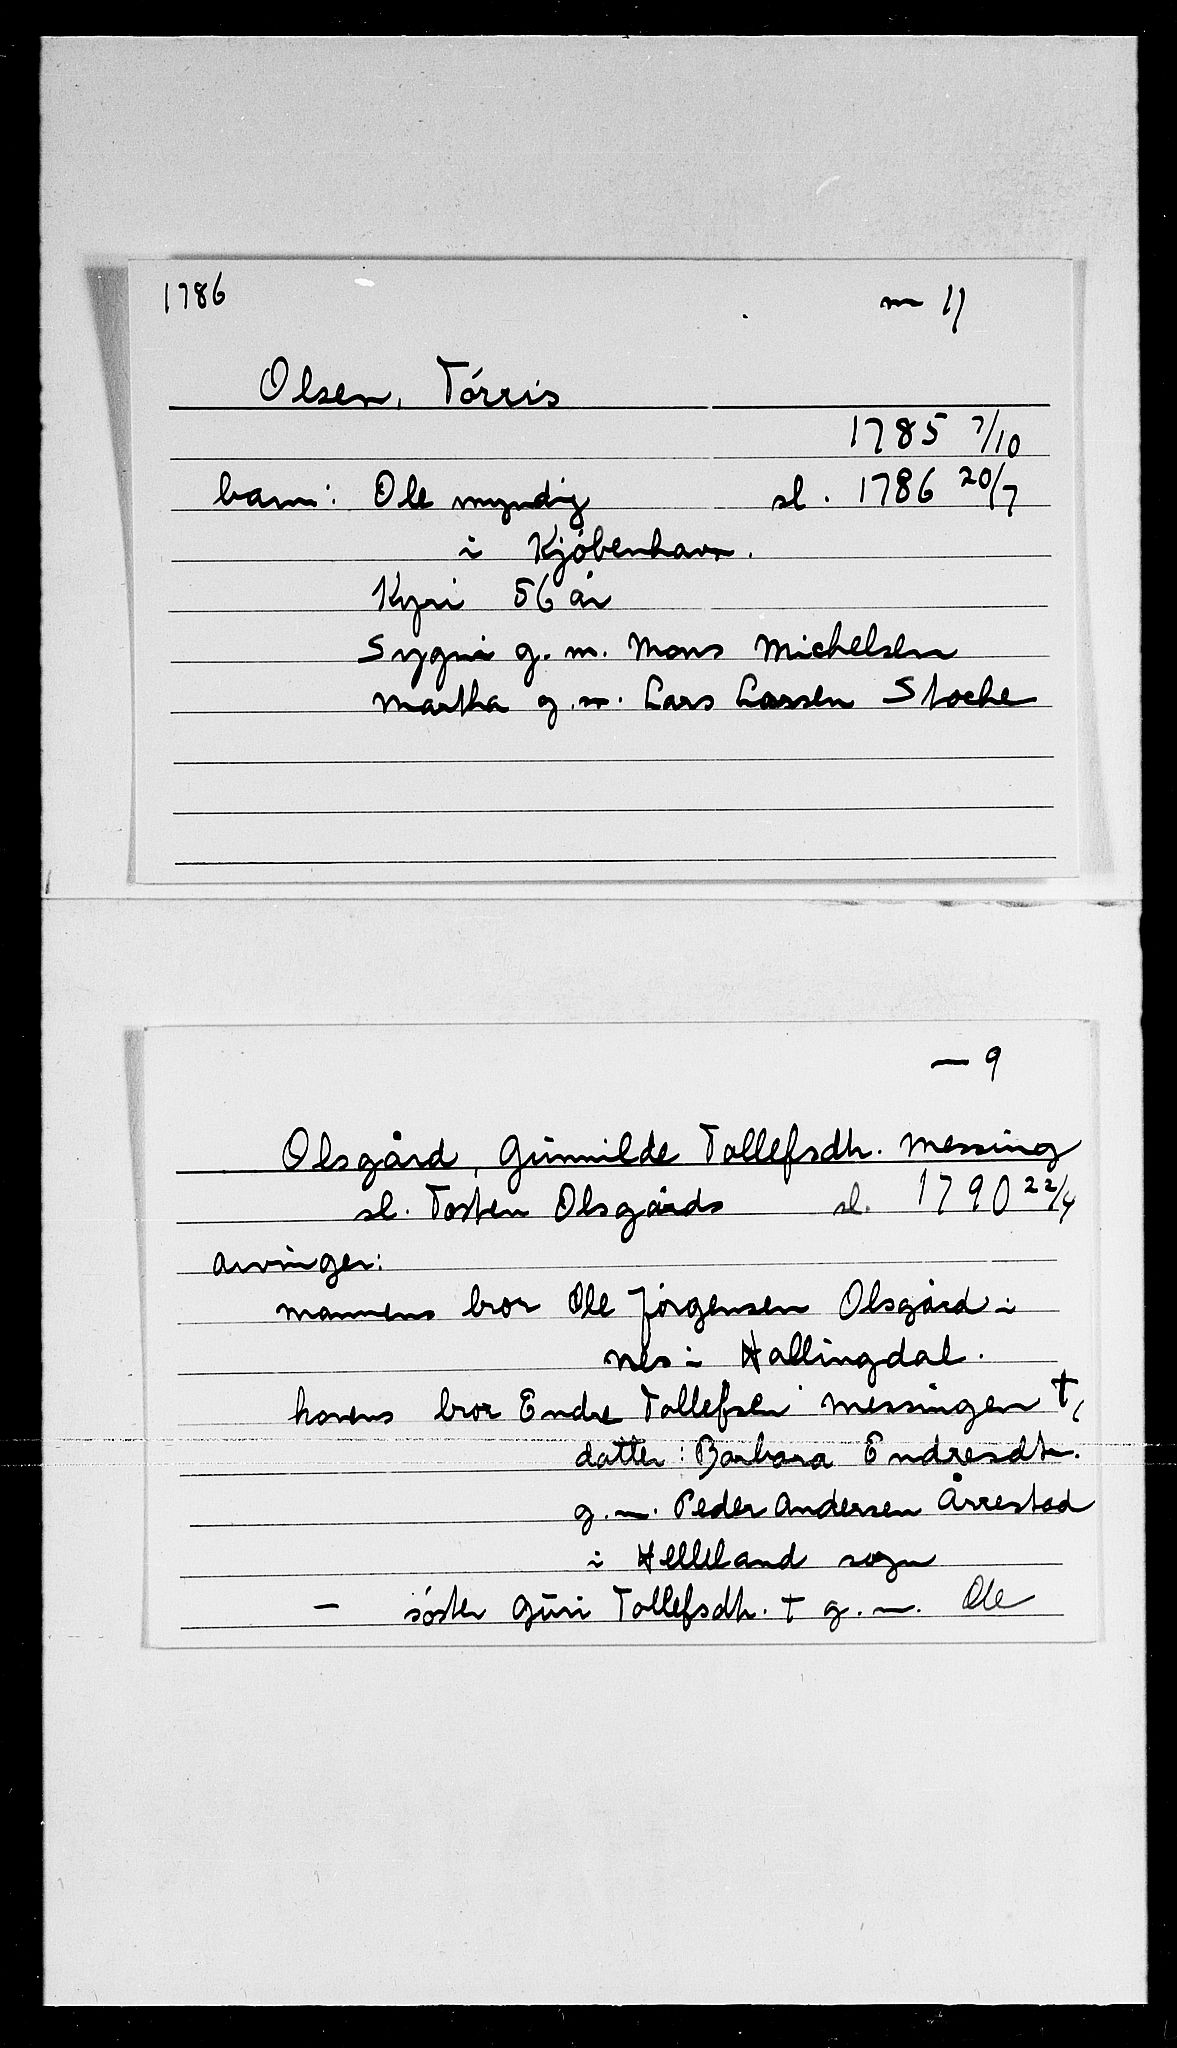 1786 m 11
Olsen, Tórris
1785 7/10
barn: Ole myndig sl. 1786 20/7
i Kjóbenhavn.
Kyri 56 år
Sygni g. m. Mons Michelsen
Martha g. m. Lars Larsen Stoche
— 9
Olsgård, Gunnilde Tollefsdtr. Messing
sl. Tosten Olsgårds sl. 1790 22/4
arvinger:
mannens bror Ole Jórgensen Olsgård i
Nes i Hallingdal.
konens bror Endre Tollefsen Messingen †,
datter: Barbara Endresdtr.
g. m. Peder Andersen Årrestad
i Helleland sogn
— sóster Guri Tollefsdtr. † g. m. Ole